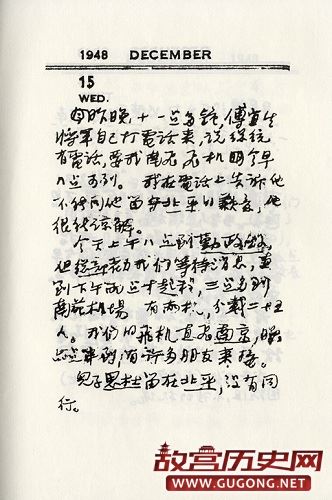 1948 DECEMBER
15
WED.
昨晚十一点多鐘,傅宜生
將軍自己打電話来,說總統
有電話,要我南飛,飛机明早
八点可到。我在電話上告訴他
不能同他留守北平的歉意,他
很能諒解。
今天上午八点到勤政殿,
但總部勸我們等待消息,直
到下午兩点才起程,三点多到
南苑机場,有兩机,分載二十五
人。我們的飛机直飛南京,晚
六点半到,有許多朋友来接。
兒子思杜留在北平,没有同
行。
故宫历史网
WWW.GUGONG.NET